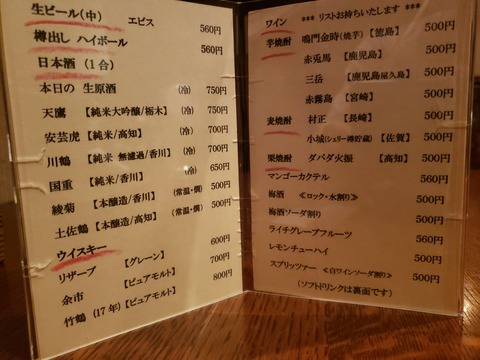 生ビール(中) エビス 560円
樽出し ハイボール 560円
日本酒 (1合)
本日の 生原酒 (冷) 750円
天鷹 【純米大吟醸/栃木】 (冷) 750円
安芸虎 【純米/高知】 (冷) 700円
川鶴 【純米 無濾過/香川】 (冷) 700円
国重 【純米/香川】 (冷) 650円
綾菊 【本醸造/香川】 (常温・燗) 500円
土佐鶴 【本醸造/高知】 (常温・燗) 500円
ウイスキー
リザーブ 【グレーン】 600円
余市 【ピュアモルト】 700円
竹鶴 (17年) 【ピュアモルト】 800円
ワイン *** リストお持ちいたします ***
芋焼酎 鳴門金時(焼芋) 【徳島】 500円
赤兎馬 【鹿児島】 500円
三岳 【鹿児島屋久島】 500円
赤霧島 【宮崎】 500円
麦焼酎 村正 【長崎】 500円
小城(シェリー樽貯蔵) 【佐賀】 500円
栗焼酎 ダバダ火振 【高知】 500円
マンゴーカクテル 560円
梅酒 ≪ロック・水割り≫ 500円
梅酒ソーダ割り 500円
ライチグレープフルーツ 560円
レモンチューハイ 500円
スプリッツァー ≪白ワインソーダ割り≫ 500円
(ソフトドリンクは裏面です)